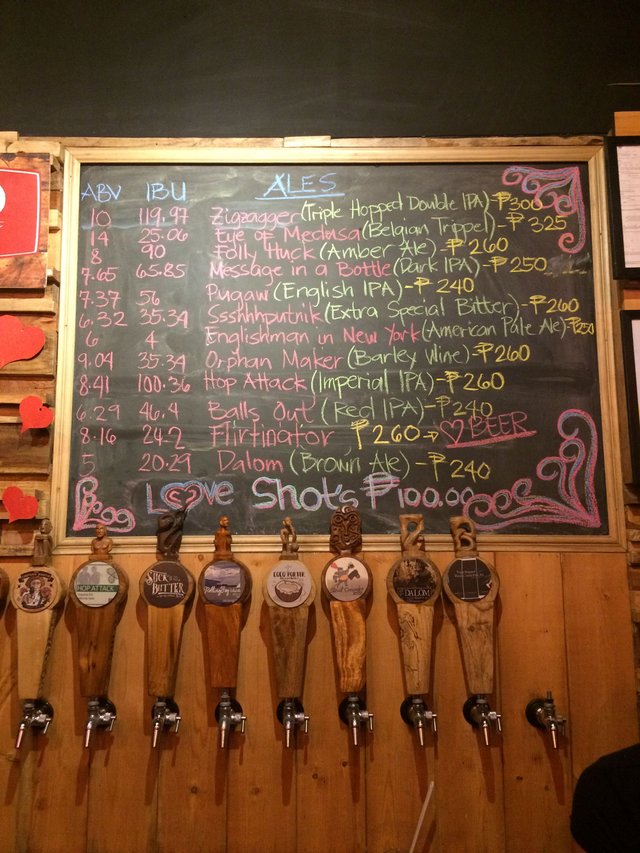 ALES
ABV IBU
10 119.97 Zigzagger (Triple Hopped Double IPA) - ₱300
14 25.06 Eve of Medusa (Belgian Trippel) - ₱325
8 90 Folly Huck (Amber Ale) - ₱260
7.65 65.85 Message in a Bottle (Dark IPA) - ₱250
7.37 56 Pugaw (English IPA) - ₱240
6.32 35.34 Ssshhhputnik (Extra Special Bitter) - ₱260
6 4 Englishman in New York (American Pale Ale) - ₱250
9.04 35.34 Orphan Maker (Barley Wine) - ₱260
8.41 100.36 Hop Attack (Imperial IPA) - ₱260
6.29 46.4 Balls Out (Red IPA) - ₱240
8.16 24.2 Flirtinator ₱260 → ♡ BEER
5 20.29 Dalom (Brown Ale) - ₱240
LOVE Shots ₱100.00
HOP ATTACK
BITTER
COCO PORTER
DALOM